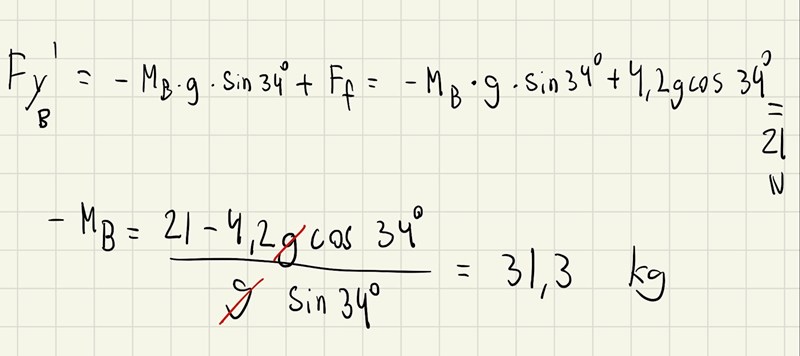 Fy'B = - MB·g · sin34° + Ff = - MB·g·sin34° + 4,2gcos 34° = 21 N
- MB = 21 - 4,2gcos 34° / g sin 34° = 31,3 kg